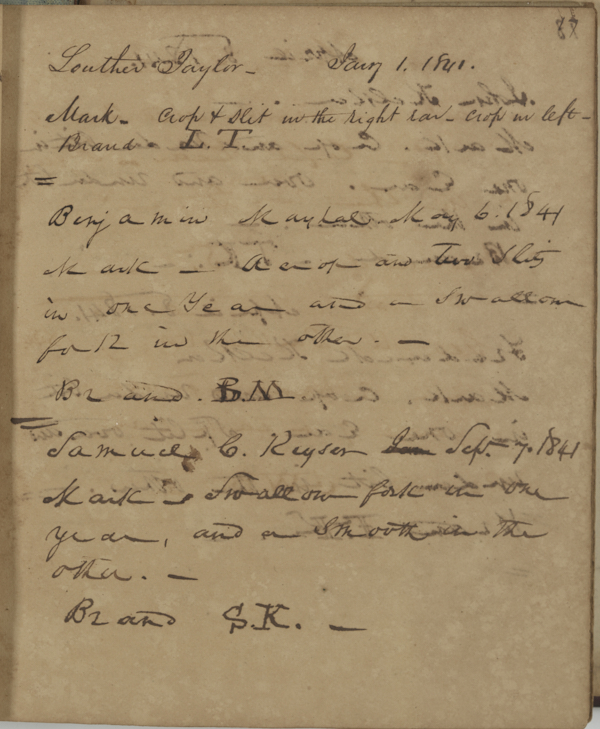 Louther Taylor - Jany 1. 1841.
Mark - Crop & slit in the right ear - crop in left -
Brand L. T.
=
Benjamin May 6. 1841
Mark - A crop and two slits
in one Year and a Swallow
fork in the other. -
Brand. B.M
Samuel C. Keyser Jan Sept. 7. 1841
Mark - Swallow fork in one
year, and a Smooth in the
other. -
Brand S.K. -